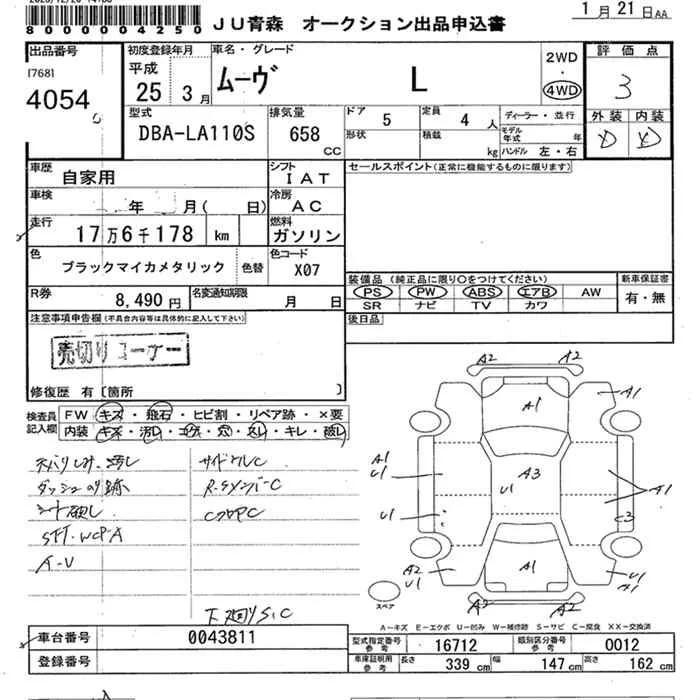 1月 21日 AA
80000004250
JU青森 オークション出品申込書
出品番号
[768]
4054
初度登録年月
平成
25 3月
車名・グレード
ムーヴ L
2WD
・
4WD
評価点
3
型式
DBA-LA110S
排気量
658
CC
ドア 5
形状
定員 4 人
積載 kg
ディーラー・並行
モデル年式 年
ハンドル 左・右
外装 内装
D D
車歴
自家用
シフト
IAT
セールスポイント(正常に機能するものに限ります)
車検
年 月( 日)
冷房
AC
走行
17万6千178 km
燃料
ガソリン
色
ブラックマイカメタリック
色替
色コード
X07
装備品 (純正品に限り○をつけてください)
PS PW ABS エアB AW
SR ナビ TV カワ
新車保証書
有・無
R券
8,490円
名変通知期限
月 日
後日品
注意事項申告欄(不具合内容等は具体的に記入して下さい)
売切りコーナー
修復歴 有 [箇所 ]
検査員記入欄
FW キズ・飛石・ヒビ割・リペア跡・×要
内装 キズ・汚レ・コゲ・穴・スレ・キレ・破レ
天バリしみ、汚レ
ダッシュのり跡
シート破レ
A-V
サイドクルC
R-SメンバーC
CフロアC
下廻りS.C
A2 A2
A1
A1
A1
U1
A3
U1
A1
U1
C3
A2
U1
A1
U1
A1
A2 A2
スペア
A-キズ E-エクボ U-凹み W-補修跡 S-サビ C-腐食 XX-交換済
車台番号
0043811
登録番号
型式指定番号
参考
16712
類別区分番号
参考
0012
車庫証明用
参考
長さ 339 cm
幅 147 cm
高さ 162 cm